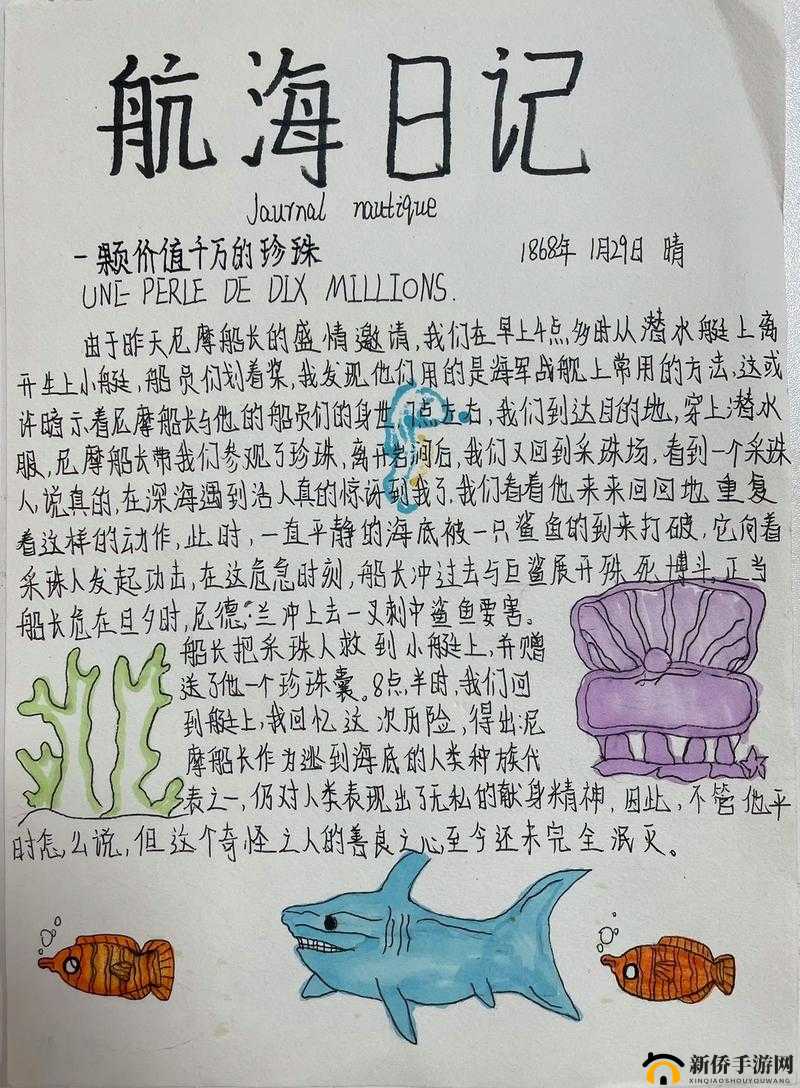 航海日记
Journal nautique
一颗价值千万的珍珠 1868年 1月29日 晴
UNE PERLE DE DIX MILLIONS.
由于昨天尼摩船长的盛情邀请,我们在早上4点多时从潜水艇上离
开坐上小艇,船员们划着桨,我发现他们用的是海军战舰上常用的方法,这或
许暗示着尼摩船长与他的船员们的身世 点左右,我们到达目的地,穿上潜水
服,尼摩船长带我们参观了珍珠,离开岩洞后,我们又回到采珠场,看到一个采珠
人,说真的,在深海遇到活人真的惊讶到我了,我们看着他来来回回地重复
着这样的动作,此时,一直平静的海底被一只鲨鱼的到来打破,它向着
采珠人发起功击,在这危急时刻,船长冲过去与巨鲨展开殊死博斗,正当
船长危在旦夕时,尼德·兰冲上去一叉刺中鲨鱼要害。
船长把采珠人救到小艇上,并赠
送了他一个珍珠囊。8点半时,我们回
到艇上,我回忆这次历险,得出尼
摩船长作为逃到海底的人类种族代
表之一,仍对人类表现出了无私的献身精神,因此,不管他平
时怎么说,但这个奇怪之人的善良之心至今还未完全泯灭。
新侨手游网
XINQIAOSHOUYOUWANG